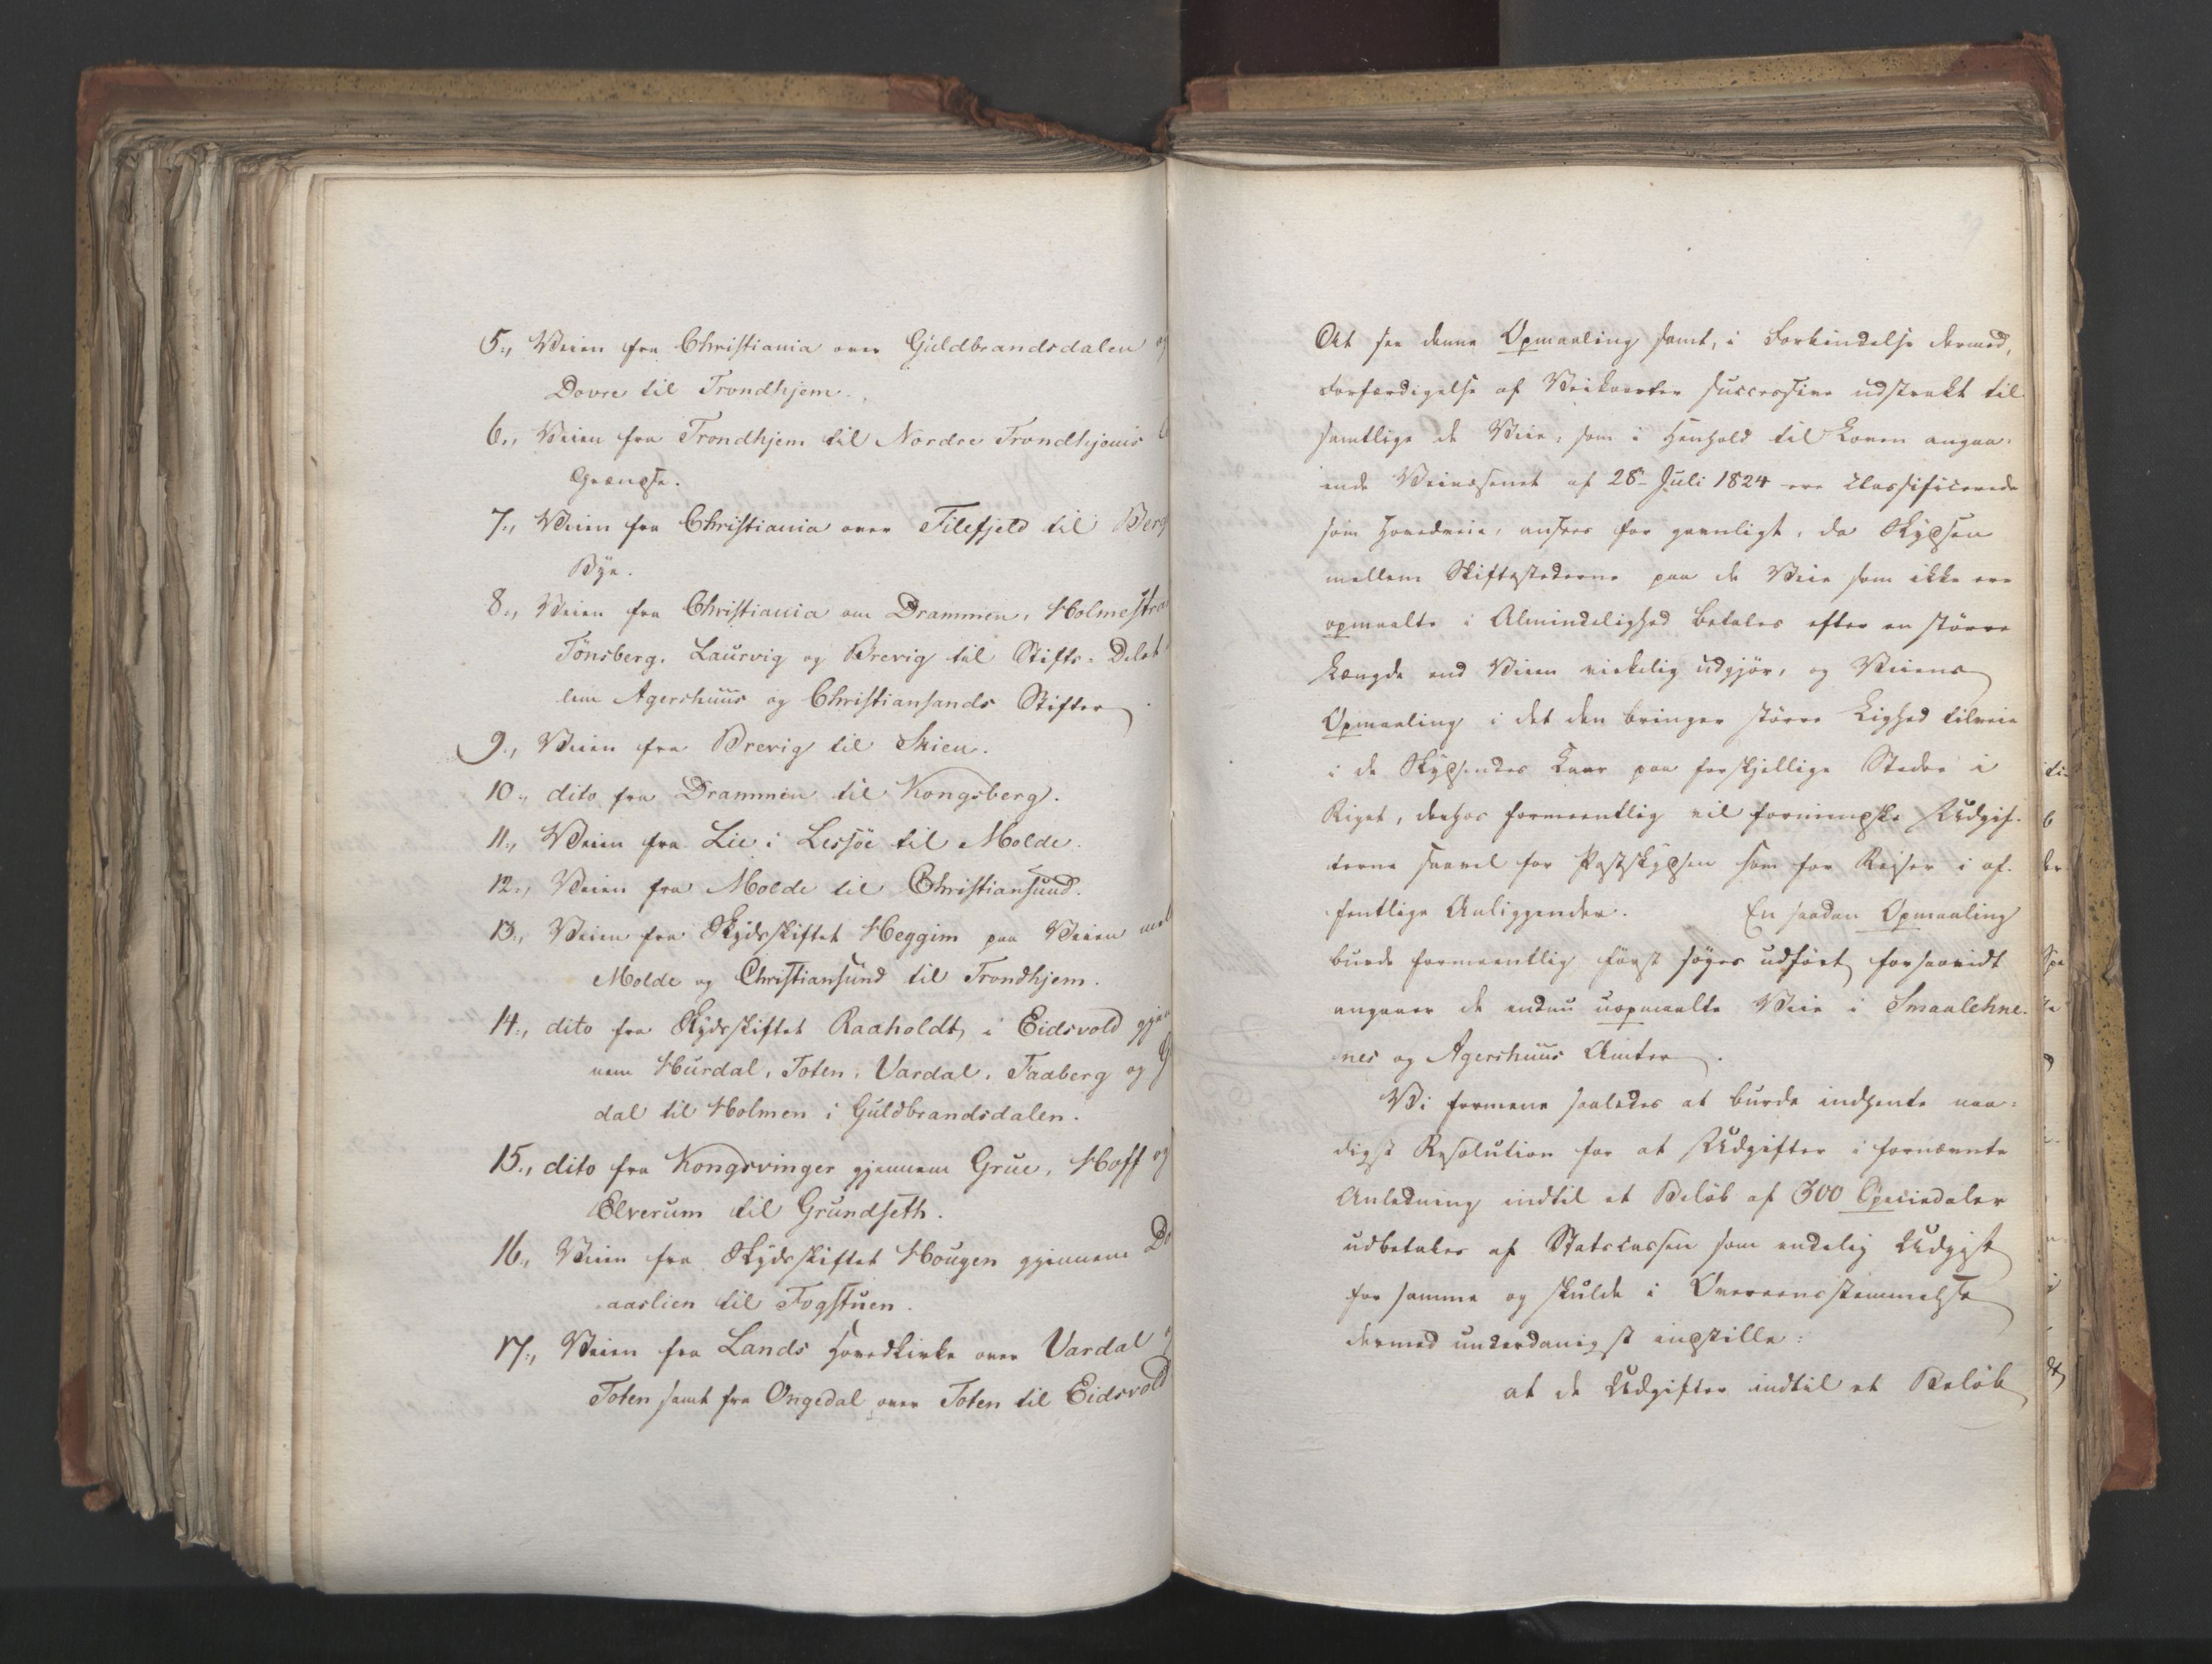 5., Veien fra Christiania over Guldbrandsdalen og
Dovre til Trondhjem.
6., Veien fra Trondhjem til Nordre Trondhjems
Grændse.
7., Veien fra Christiania over Filefjeld til Berg
Bye.
8., Veien fra Christiania om Drammen, Holmestra
Tönsberg, Laurvig og Brevig til Stifts-Delet
lem Agershuus og Christiansands Stifter.
9., Veien fra Brevig til Skien.
10., dito fra Drammen til Kongsberg.
11., Veien fra Lie i Lessöe til Molde.
12., Veien fra Molde til Christiansund.
13., Veien fra Skydsskiftet Heggim paa Veien mel
Molde og Christiansund til Trondhjem.
14., dito fra Skydsskiftet Raaholdt, i Eidsvold gjen
nem Hurdal, Toten, Vardal, Faaberg og G
dal til Holmen i Guldbrandsdalen.
15., dito fra Kongsvinger gjennem Grue, Hoff og
Elverum til Grundseth.
16., Veien fra Skydsskiftet Hougen gjennem Do
aaslien til Fogstuen.
17., Veien fra Lands Hovedkirke over Vardal
Toten samt fra Ongedal over Toten til Eidsvold
At see denne Opmaaling samt, i Forbindelse dermed,
Forfærdigelse af Veikarter successive udstrakt til
samtlige de Veie, som i Henhold til Loven angaa-
ende Veivæsenet af 28de Juli 1824 ere classificerede
som Hovedveie, ansees for gavnligt, da Skydsen
mellem Skiftestederne paa de Veie som ikke ere
opmaalte i Almindelighed betales efter en större
Længde end Veien virkelig udgjör, og Veiens
Opmaaling i det den bringer större Lighed tilveie
i de Skydsendes Kaar paa forskjellige Steder i
Riget, derhos formeentlig vil formindske Udgif-
terne saavel for Postskydsen som for Reiser i of-
fentlige Anliggender. En saadan Opmaaling
burde formeentlig först söges udfört forsaavidt
angaaer de endnu uopmaalte Veie i Smaalehne-
nes og Agershuus Amter.
Vi formene saaledes at burde indhente naa-
digst Resolution for at Udgifter i fornævnte
Anledning indtil et Belöb af 300 Speciedaler
udbetales af Statscassen som endelig Udgift
for samme og skulde i Overeensstemmelse
dermed underdanigst indstille:
at de Udgifter indtil et Belöb